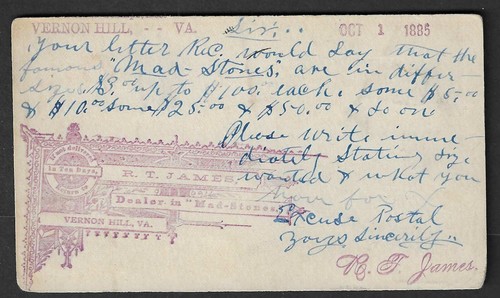 VERNON HILL, - - VA.
OCT 1 1885
Sir..
Your letter Rec. would say that the
famous "Mad-Stones," are in differ-
sizes up to $100. each. some $5.00
& $10.00 some $25.00 & $50.00 & so on
Please write imme-
diately stating size
wanted & what you
for
Excuse Postal
Yours Sincerily
R. T. James.
If not delivered
in Ten Days,
return to
R. T. JAMES,
Dealer in "Mad-Stones
VERNON HILL, VA.